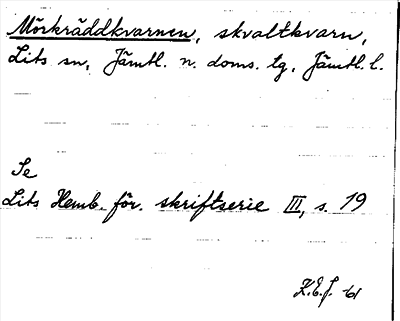 Mörkräddkvarnen, skvaltkvarn,
Lits sn, Jämtl. n. doms. tg, Jämtl. l.
Se
Lits Hemb. för. skriftserie III, s. 19
K.E.F. 61